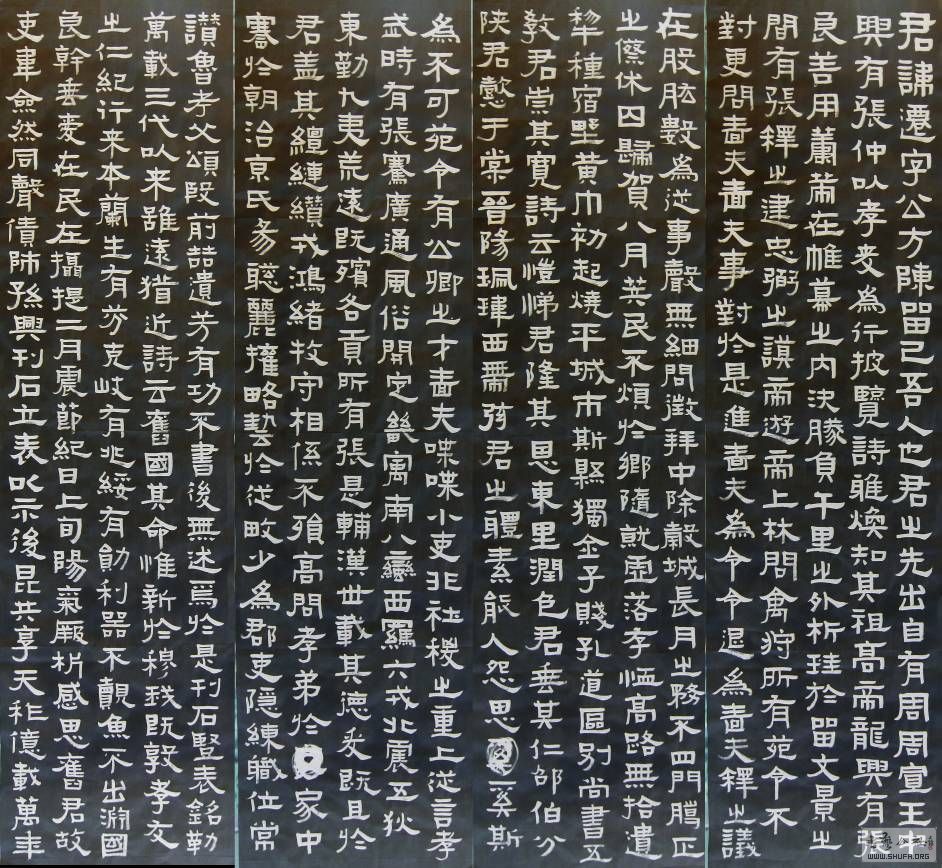 君諱遷字公方陳留己吾人也君之先出自有周周宣王中
興有張仲以孝友為行披覽詩雅煥知其祖高帝龍興有張
良善用籌策在帷幕之內決勝負千里之外析珪於留文景之
間有張釋之建忠弼之謨帝遊帝上林問禽狩所有苑令不
對更問嗇夫嗇夫事對於是進嗇夫為令令退為嗇夫釋之議
在股肱數為從事聲無細問徵拜中除穀城長月之務不四門臘正
之僚休囚歸賀八月筭民不煩於鄉隨就虛落存恤高路無拾遺
犁種宿野黃巾初起燒平城市斯縣獨全子賤孔道區別尚書五
教君崇其寬詩云愷悌君隆其恩東里潤色君垂其仁邵伯分
陝君懿于棠晉陽珮瑋西帶弦君之體素能人怨思奚斯
為不可苑令有公卿之才嗇夫喋喋小吏非社稷之重上從言孝
武時有張騫廣通風俗開定畿寓南八蠻西羈六戎北震五狄
東勤九夷荒遠既殯各貢所有張是輔漢世載其德爰既且於
君蓋其纏縺纘戎鴻緒牧守相係不殞高問孝弟於家中
騫於朝治京氏易聰麗權略藝於從畋少為郡吏隱練職位常
讚魯考父頌殷前喆遺芳有功不書後無述焉於是刊石豎表銘勒
萬載三代以來雖遠猶近詩云舊國其命惟新於穆我既敦孝友
之仁紀行來本蘭生有芬克岐有兆綏有勛利器不覿魚不出淵國
良幹垂愛在民左攝提二月震節紀日上旬陽氣厥析感思舊君故
吏韋僉然同聲賃師孫興刊石立表以示後昆共享天祚億載萬年
WWW.SHUFA.ORG